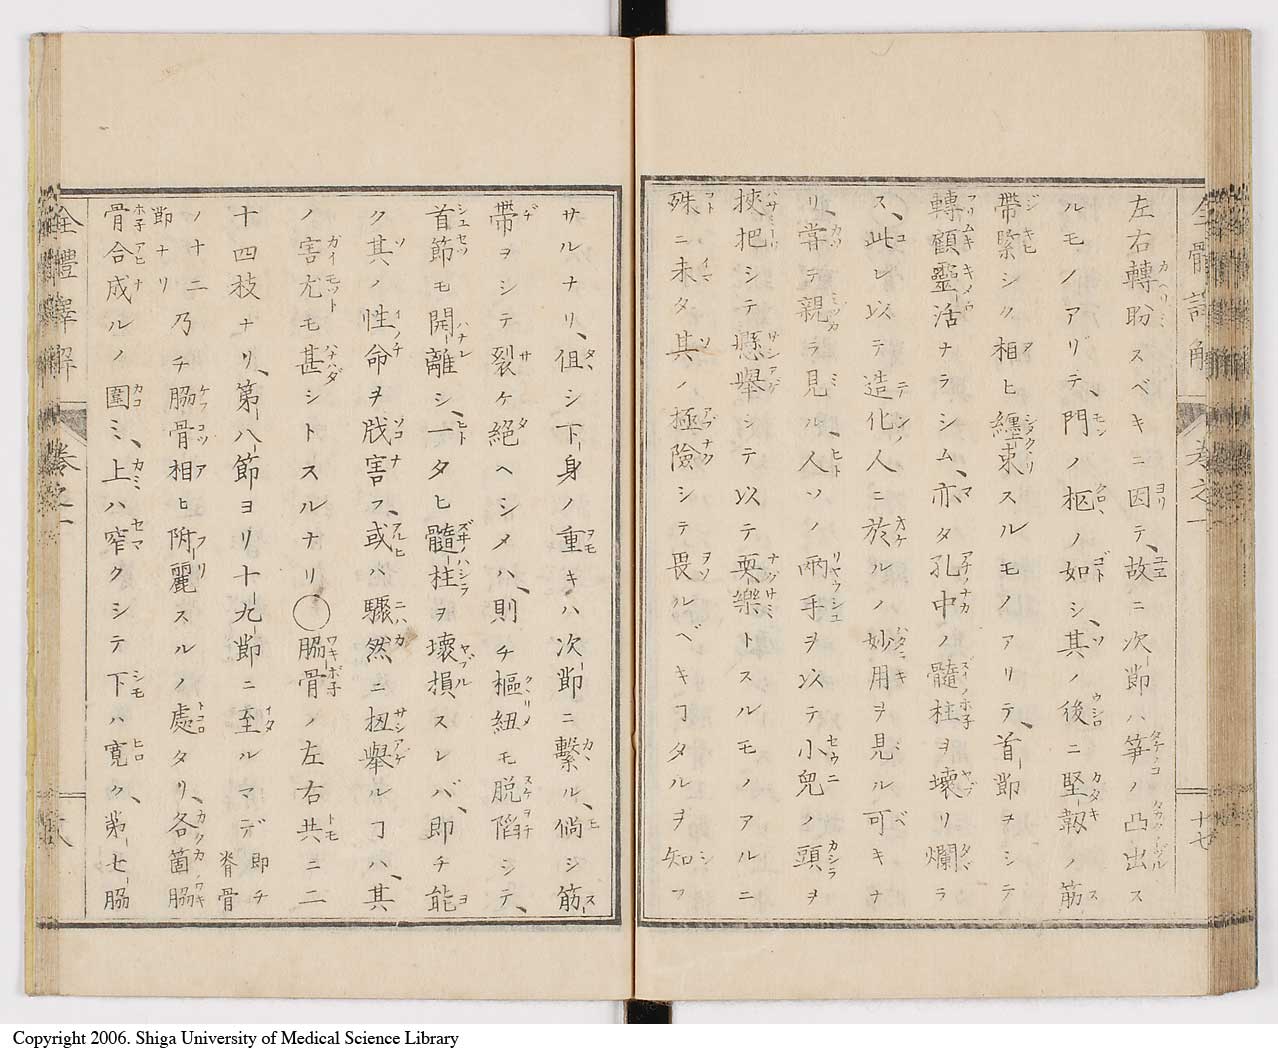 左右轉盼スベキニ因テ、故ニ次節ハ筍ノ凸出ス
ルモノアリテ、門ノ枢ノ如シ、其ノ後ニ堅韌ノ筋
帶緊シク相ヒ纒束スルモノアリテ、首節ヲシテ
轉顧靈活ナラシム、亦タ孔中ノ髓柱ヲ壞リ爛ラ
ス、此レ以テ造化人ニ於ルノ妙用ヲ見ル可キナ
リ、甞ヲ親ラ見ル、人ソノ兩手ヲ以テ小兒ノ頭ヲ
挾把シテ懸舉シテ以テ耍樂トスルモノアルニ
殊ニ未タ其ノ極險シテ畏ルベキヿタルヲ知ラ
サルナリ、伹シ下身ノ重キハ次節ニ繫ル、倘シ筋
帶ヲシテ裂ケ絕ヘシメハ、則チ樞紐モ脱陷シテ、
首節モ開離シ、一タヒ髓柱ヲ壞損スレバ、即チ能
ク其ノ性命ヲ戕害フ、或ハ驟然ニ扭舉ルヿハ、其
ノ害尤モ甚シトスルナリ、○脇骨ノ左右共ニ二
十四枝ナリ、第八節ヨリ十九節ニ至ルマデ即チ脊骨
ノ十二節ナリ乃チ脇骨相ヒ附麗スルノ處タリ、各箇脇
骨合成ルノ圍ミ、上ハ窄クシテ下ハ寛ク、第七脇
全體譯解
卷之一
十七
Copyright 2006. Shiga University of Medical Science Library